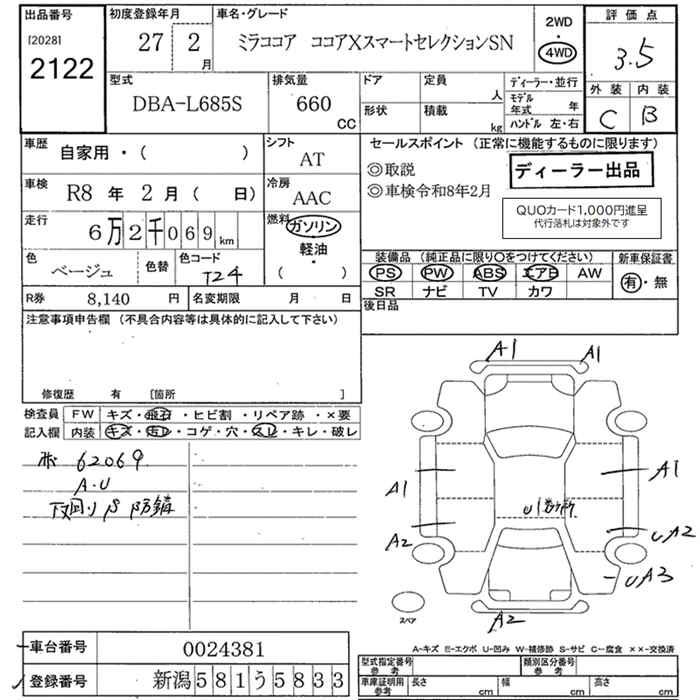 出品番号
[2028]
2122
初度登録年月
27 2月
車名・グレード
ミラココア ココアXスマートセレクションSN
2WD
・
4WD
評価点
3.5
外装 内装
C B
型式
DBA-L685S
排気量
660
CC
ドア
定員
人
形状
積載
kg
ディーラー・並行
モデル年式 年
ハンドル 左・右
車歴
自家用・( )
シフト
AT
車検
R8年 2月( 日)
冷房
AAC
走行
6万2千069km
燃料
ガソリン
軽油・
( )
色
ベージュ
色替
色コード
T24
R券 8,140円
名変期限 月 日
セールスポイント (正常に機能するものに限ります)
◎取説
◎車検令和8年2月
ディーラー出品
QUOカード1,000円進呈
代行落札は対象外です
装備品 (純正品に限り○をつけてください)
PS PW ABS エアB AW
SR ナビ TV カワ
新車保証書
有・無
後日品
注意事項申告欄 (不具合内容等は具体的に記入して下さい)
修復歴 有 [箇所 ]
検査員記入欄
FW キズ・飛石・ヒビ割・リペア跡・×要
内装 キズ・汚レ・コゲ・穴・スレ・キレ・破レ
62069
A・U
下回りS 防錆
A1
A1
A1
A1
A2
U1
UA2
UA3
A2
スペア
A-キズ E-エクボ U-凹み W-補修跡 S-サビ C-腐食 ××-交換済
車台番号 0024381
登録番号 新潟581う5833
型式指定番号
参考
類別区分番号
参考
車庫証明用
参考
長さ cm
幅 cm
高さ cm